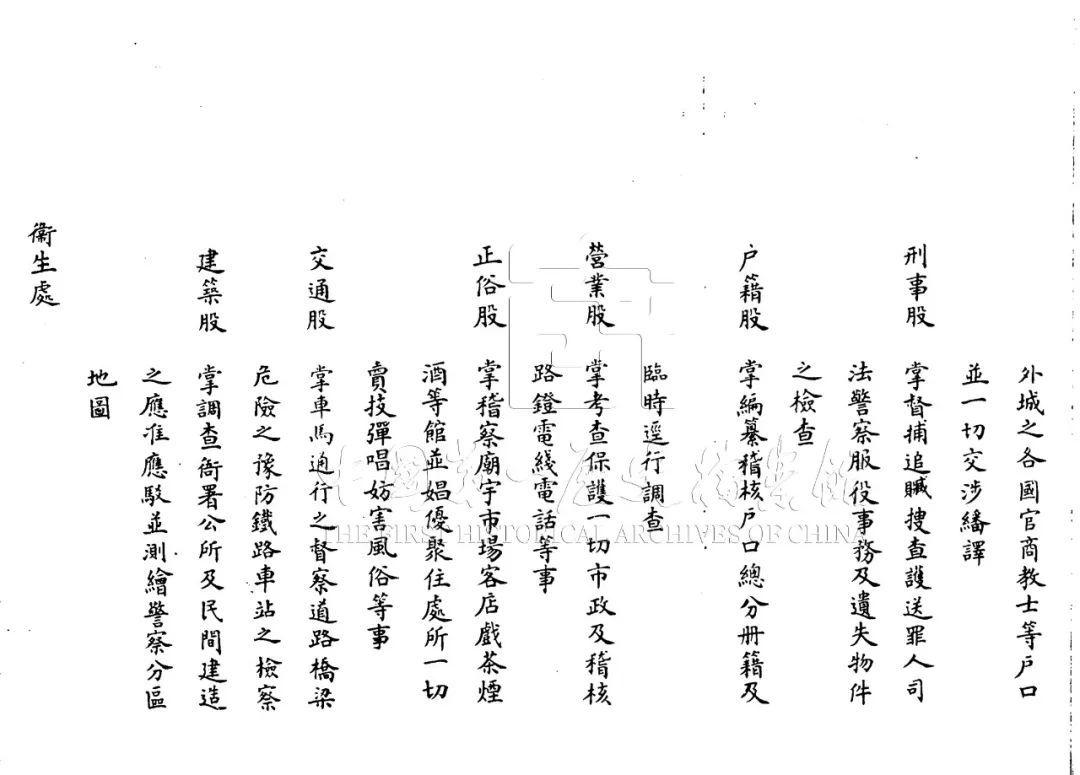 外城之各國官商教士等戶口
並一切交涉繙譯
刑事股 掌督捕追贓搜查護送罪人司
法警察服役事務及遺失物件
之檢查
戶籍股 掌編纂稽核戶口總分册籍及
臨時逕行調查
營業股 掌考查保護一切市政及稽核
路鐙電綫電話等事
正俗股 掌稽察廟宇市場客店戲茶煙
酒等館並娼優聚住處所一切
賣技彈唱妨害風俗等事
交通股 掌車馬通行之督察道路橋梁
危險之豫防鐵路車站之檢察
建築股 掌調查衙署公所及民間建造
之應准應駁並測繪警察分區
地圖
衛生處
中國第一歷史檔案館
THE FIRST HISTORICAL ARCHIVES OF CHINA